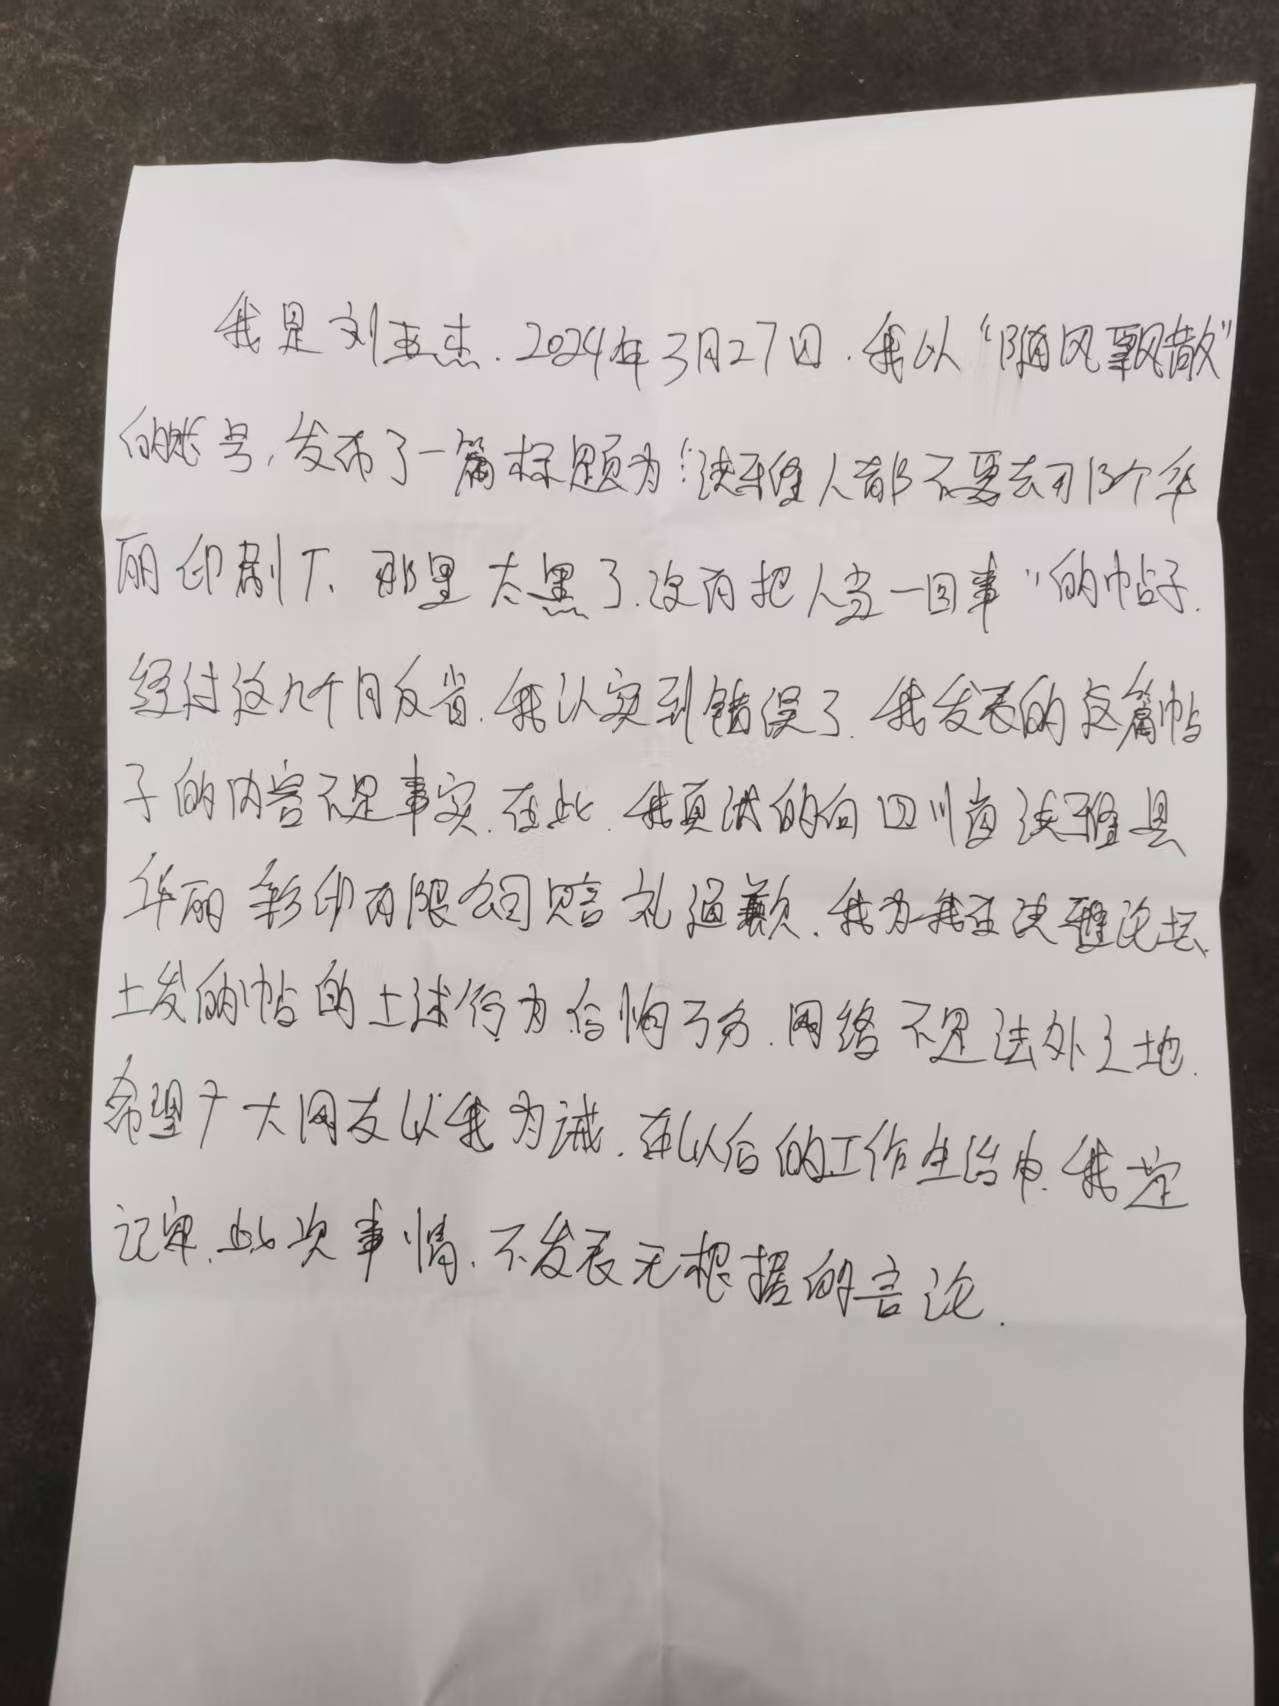 我是刘亚杰.2024年3月27日.我以“随风飘散”
的账号,发布了一篇标题为“汉王隆人都不要去那个华
丽印刷厂、那里太黑了.没有把人当一回事”的帖子.
经过这几个月反省.我认实到错误了.我发表的这篇帖
子的内容不是事实.在此.我真诚的向四川省 县
华丽彩印有限公司赔礼道歉.我为我在 论坛
上发的帖的上述行为后悔万分.网络不是法外之地.
希望广大网友以我为诫.在以后的工作生活中.我一定
记牢.此次事情.不发表无根据的言论.